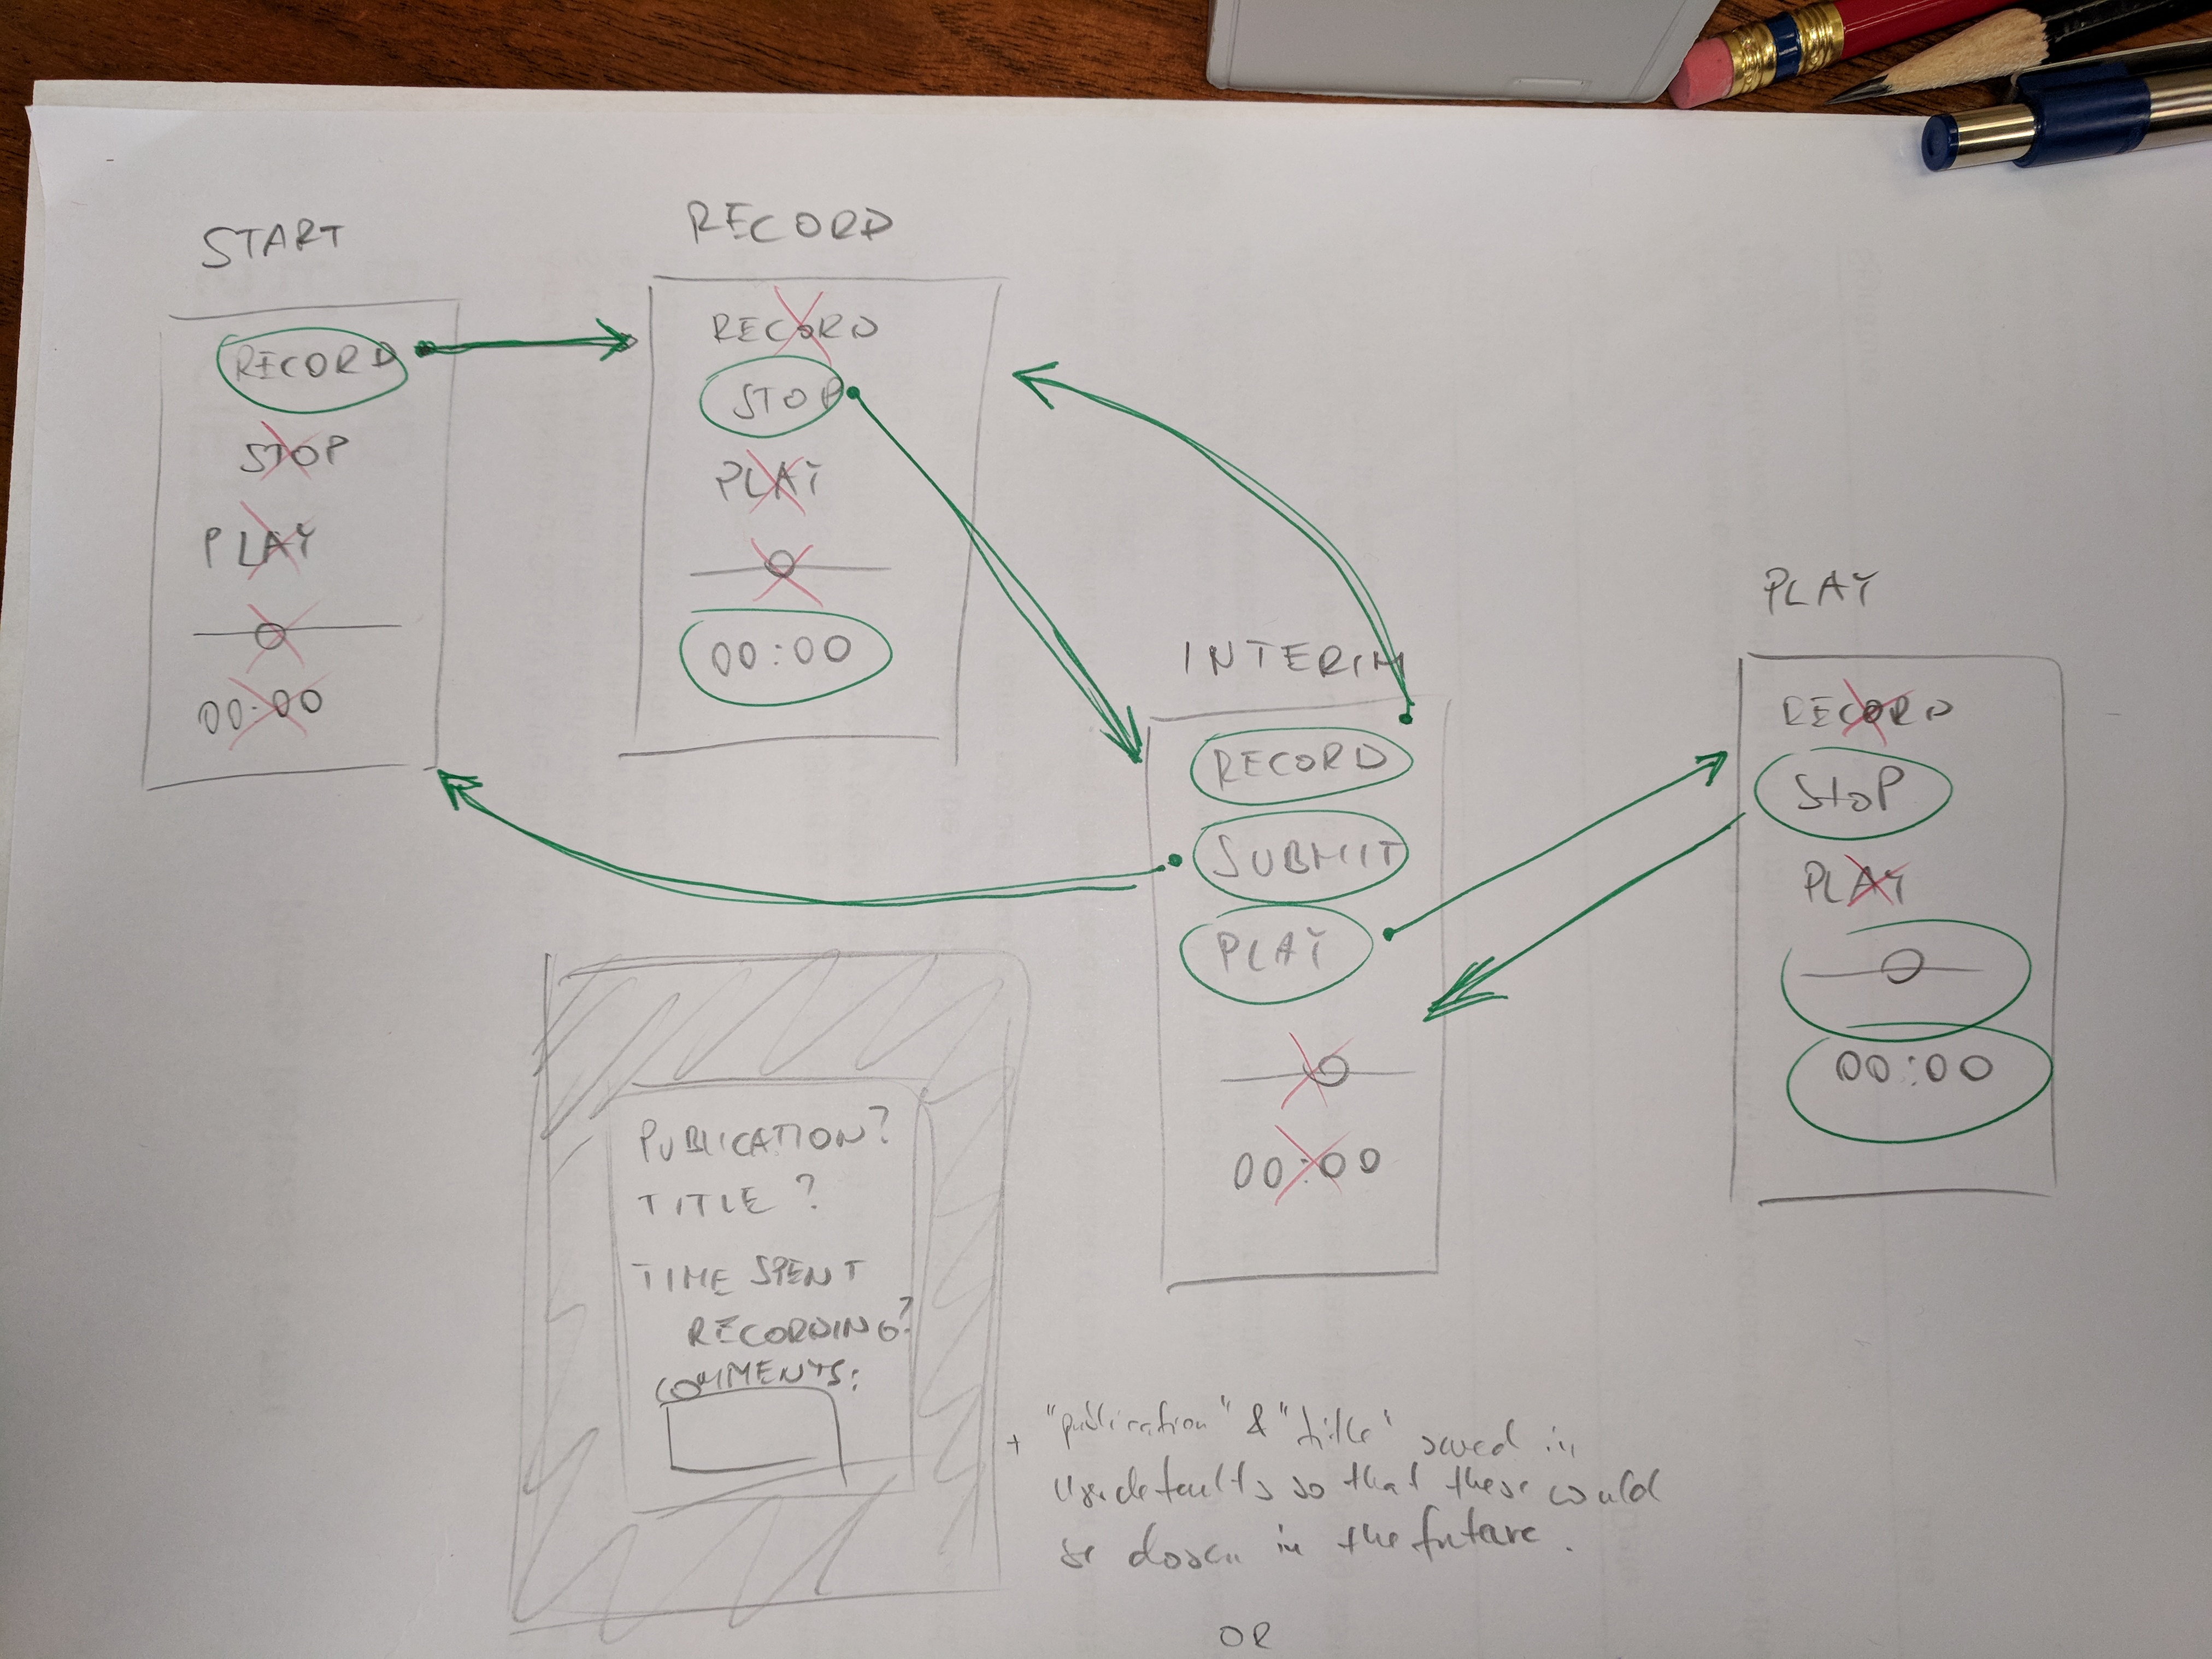 START
RECORD
STOP
PLAY
00:00
RECORD
RECORD
STOP
PLAY
00:00
INTERIM
RECORD
SUBMIT
PLAY
00:00
PLAY
RECORD
StoP
PLAY
00:00
PUBLICATION?
TITLE ?
TIME SPENT
RECORDING?
COMMENTS:
+ "publication" & "title" saved in
Userdefaults so that these could
be in the future.
OR